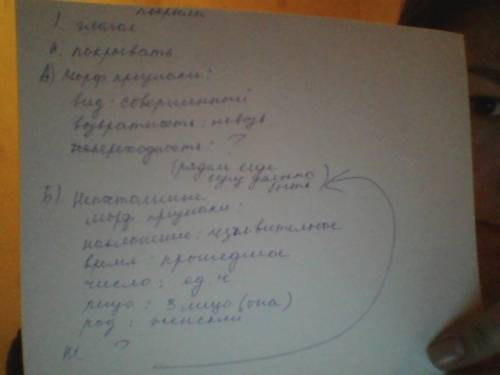 покрыла
I. глагол
II. покрывать
А) морф признаки:
вид: совершенный
возвратность: невозв
переходность: ?
(рядом еще
сущ должно
быть)
Б) Непостоянные
морф признаки:
наклонение: изъявительное
время: прошедшее
число: ед. ч
лицо: 3 лицо (она)
род: женский
III. ?